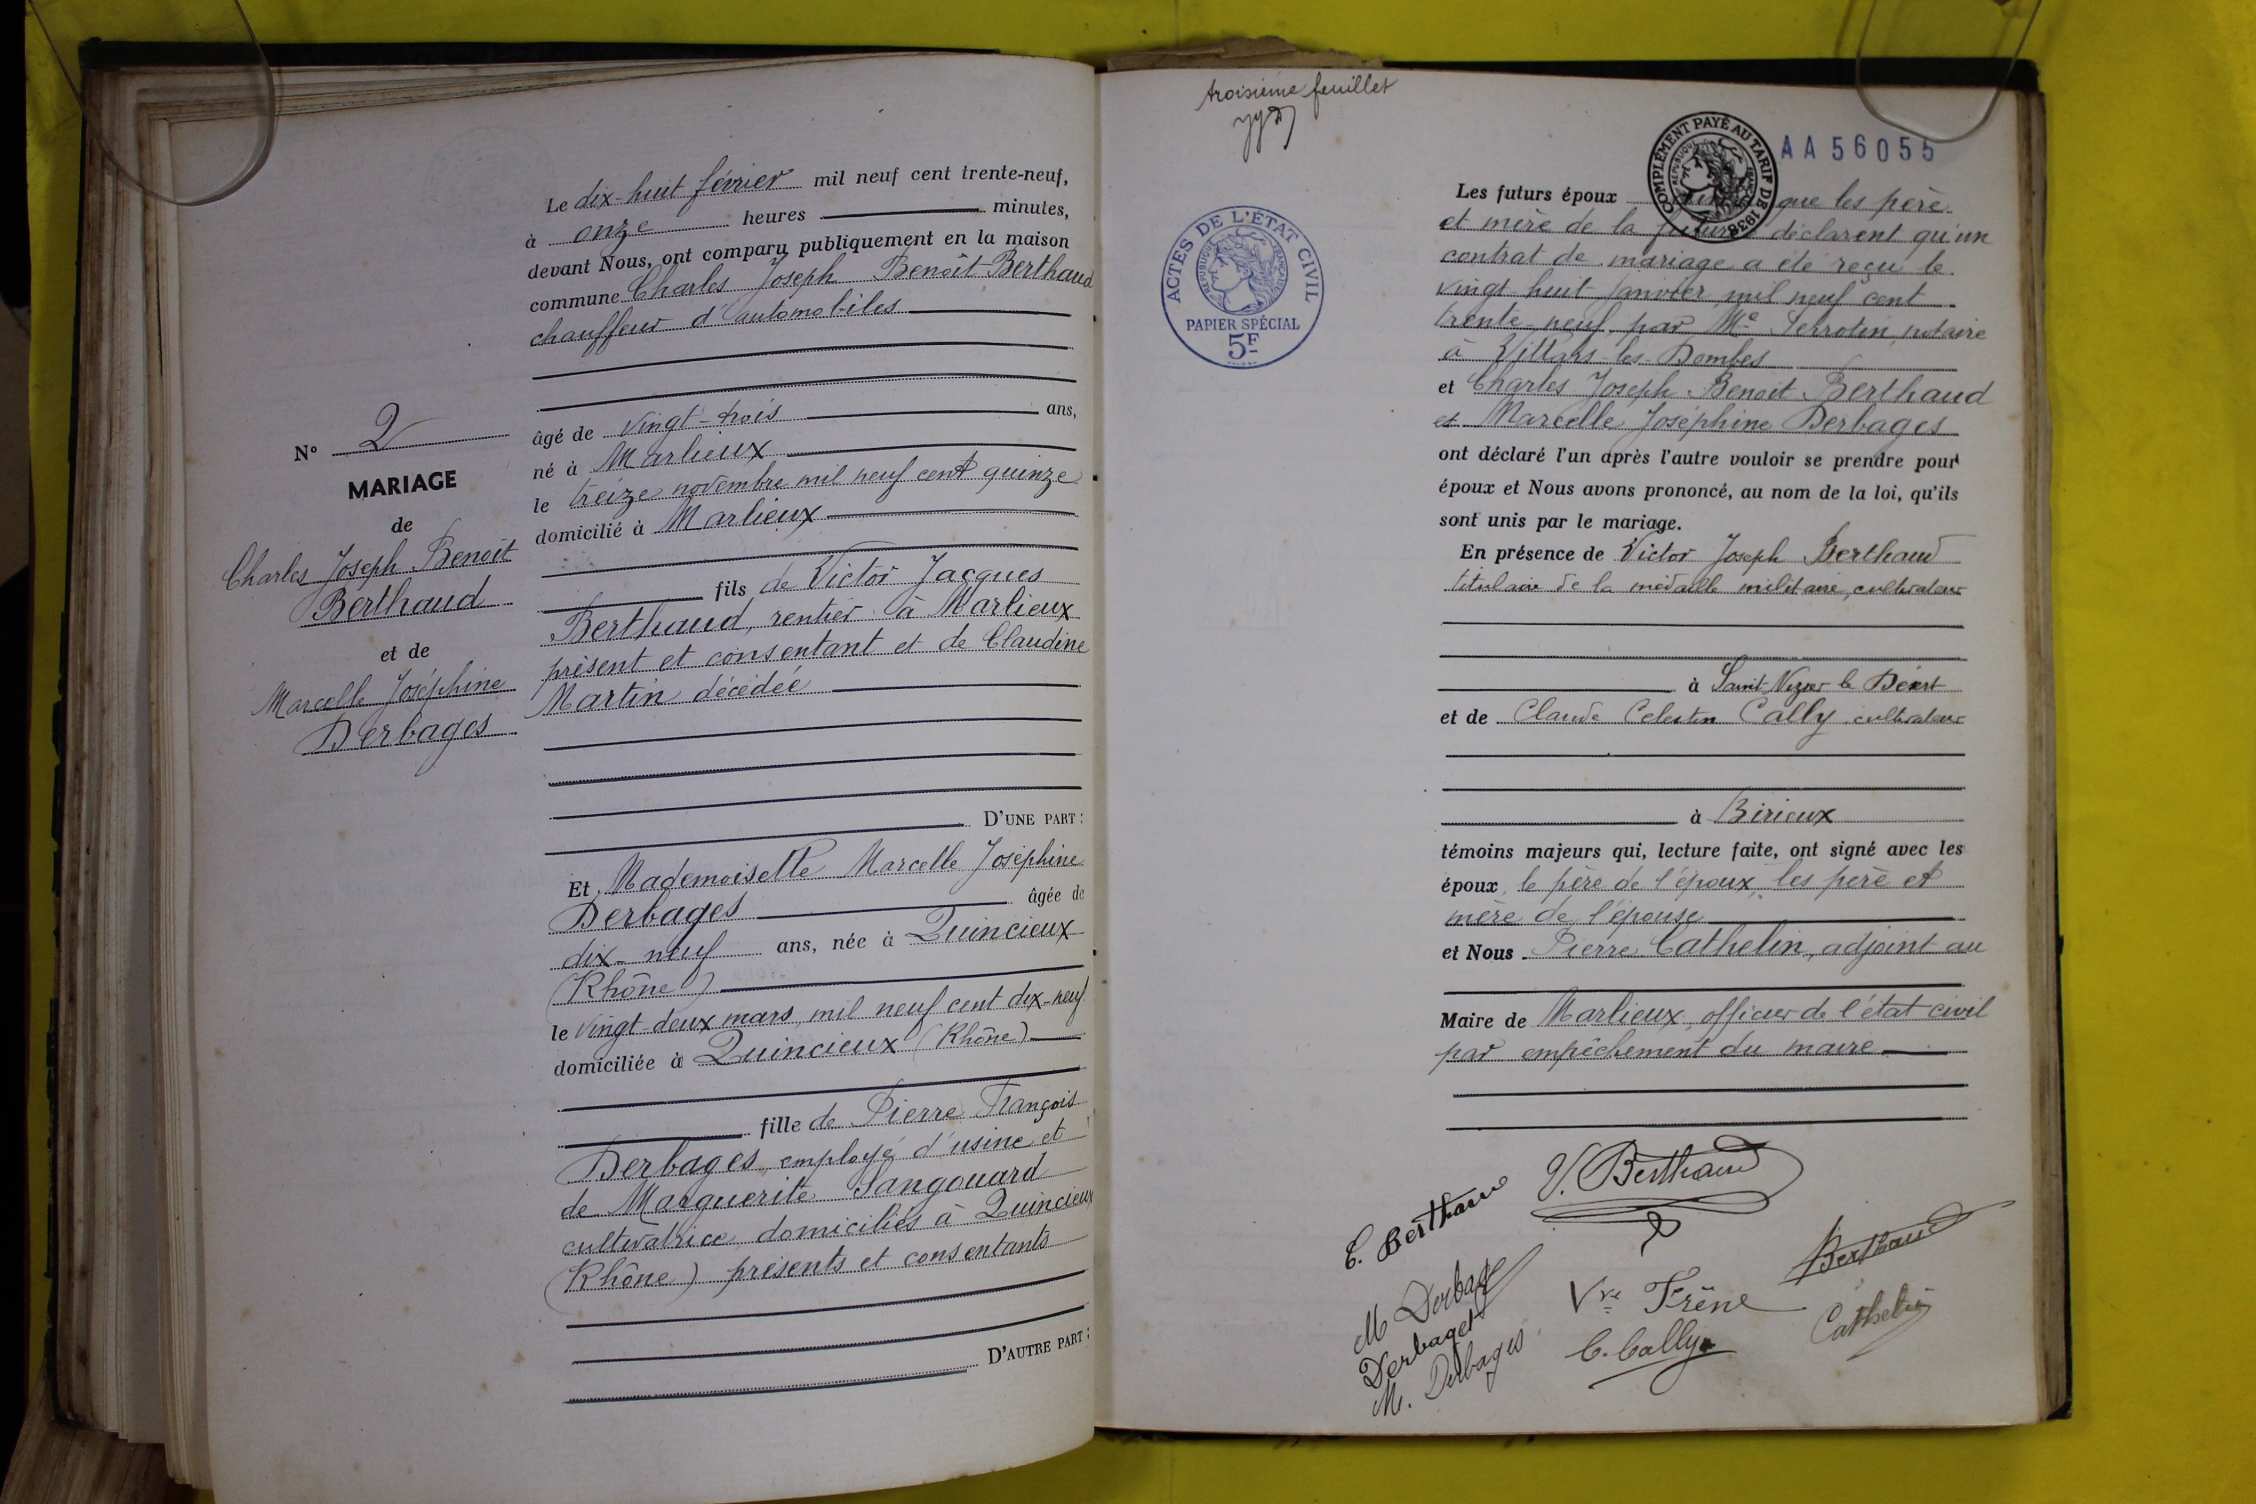 N° 2
MARIAGE
de
Charles Joseph Benoît
Berthaud
et de
Marcelle Joséphine
Derbages
Le dix-huit février mil neuf cent trente-neuf,
à onze heures minutes,
devant Nous, ont comparu publiquement en la maison
commune Charles Joseph Benoît Berthaud
chauffeur d'automobiles
âgé de vingt-trois ans,
né à Marlieux
le treize novembre mil neuf cent quinze
domicilié à Marlieux
fils de Victor Jacques
Berthaud, rentier à Marlieux
présent et consentant et de Claudine
Martin décédée
D'UNE PART :
Et Mademoiselle Marcelle Joséphine
Derbages âgée de
dix-neuf ans, née à Quincieux
(Rhône)
le vingt-deux mars mil neuf cent dix-neuf
domiciliée à Quincieux (Rhône)
fille de Pierre François
Derbages, employé d'usine et
de Marguerite Sangouard
cultivatrice domiciliés à Quincieux
(Rhône) présents et consentants
D'AUTRE PART :
troisième feuillet
ACTES DE L'ÉTAT CIVIL
RÉPUBLIQUE FRANÇAISE
PAPIER SPÉCIAL
5F
COMPLÉMENT PAYÉ AU TARIF DE 1938
AA56055
Les futurs époux que les père
et mère de la future déclarent qu'un
contrat de mariage a été reçu le
vingt huit janvier mil neuf cent
trente-neuf par Me notaire
à Villars-les-Dombes
et Charles Joseph Benoit Berthaud
et Marcelle Joséphine Derbages
ont déclaré l'un après l'autre vouloir se prendre pour
époux et Nous avons prononcé, au nom de la loi, qu'ils
sont unis par le mariage.
En présence de Victor Joseph Berthaud
titulaire de la médaille militaire, cultivateur
à Saint-Nizier le Désert
et de Claude Celestin Cally cultivateur
à Birieux
témoins majeurs qui, lecture faite, ont signé avec les
époux, le père de l'époux, les père et
mère de l'épouse
et Nous Pierre Cathelin, adjoint au
Maire de Marlieux, officier de l'état civil
par empêchement du maire
C. Berthaud V. Berthaud
Berthaud
M Derbages
Vve Frêne
Derbages
C. Cally
Cathelin
M. Derbages